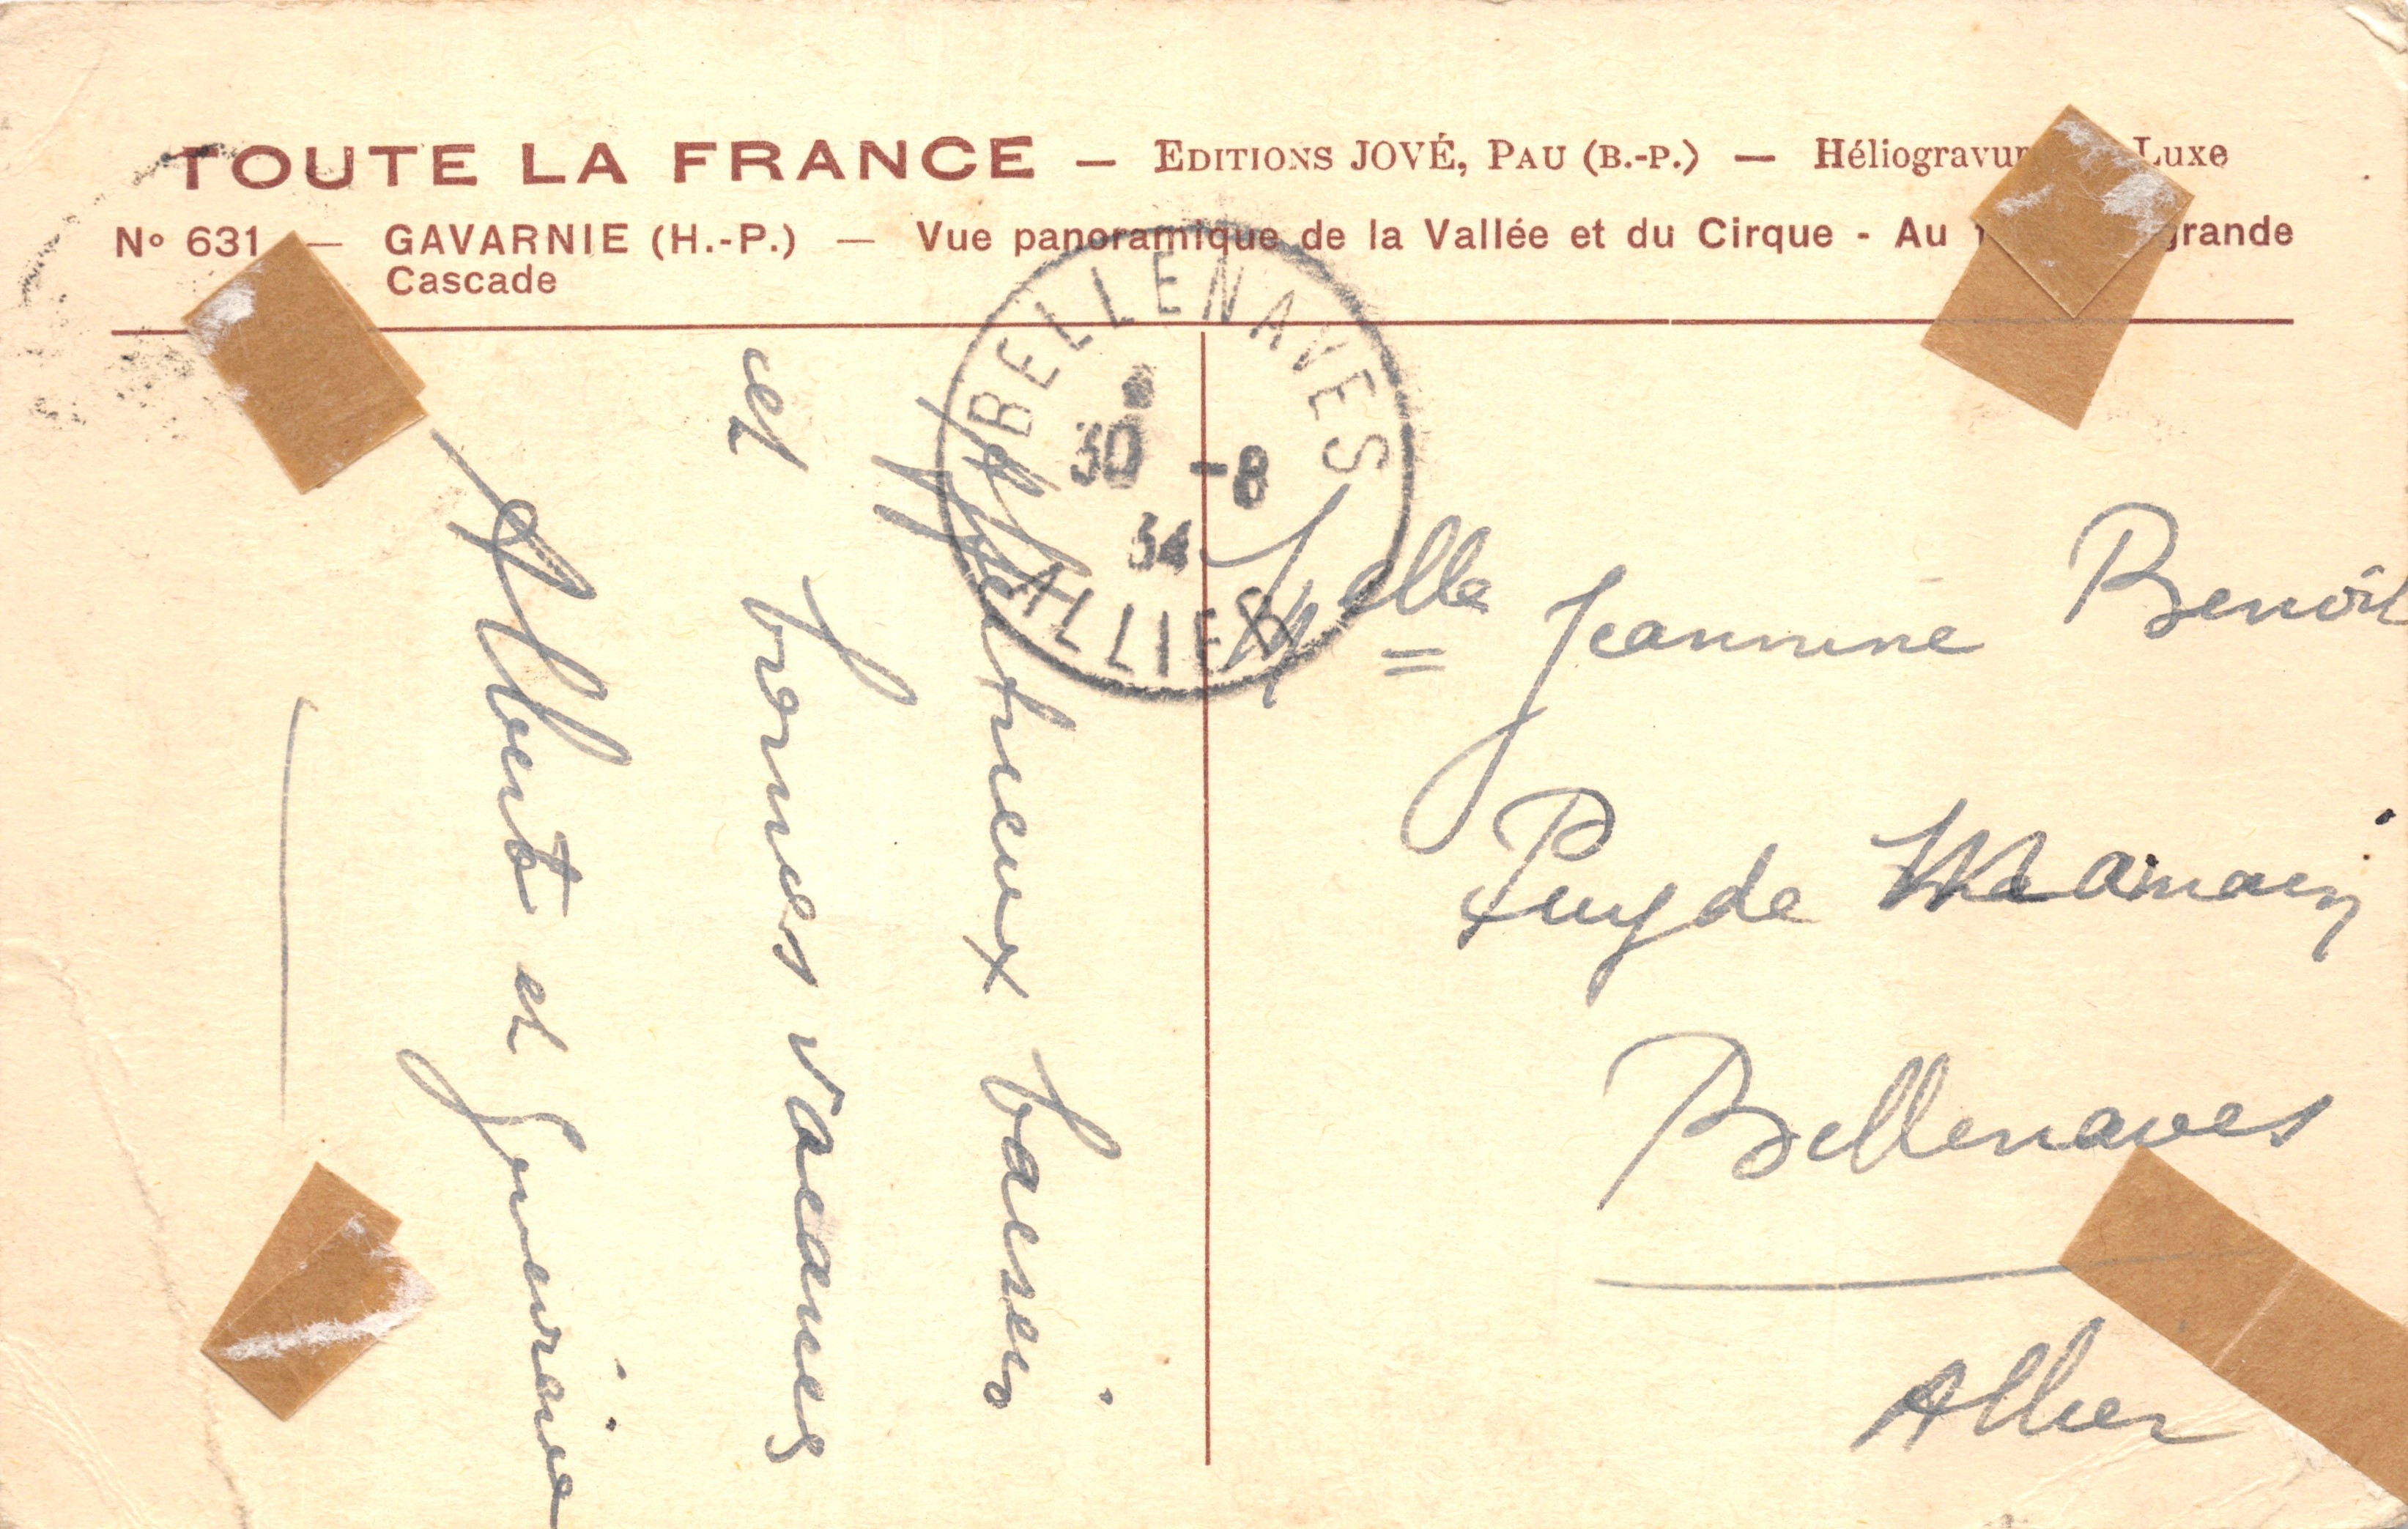 TOUTE LA FRANCE — EDITIONS JOVÉ, PAU (B.-P.) — Luxe
Nº 631 — GAVARNIE (H.-P.) — Vue panoramique de la Vallée et du Cirque - Au grande
Cascade
BELLENAVES
30 -8
34
ALLIER
Affectueux baisers
et bonnes vacances
Albert et
Melle Jeannine Benoit
Puy de
Bellenaves
Allier